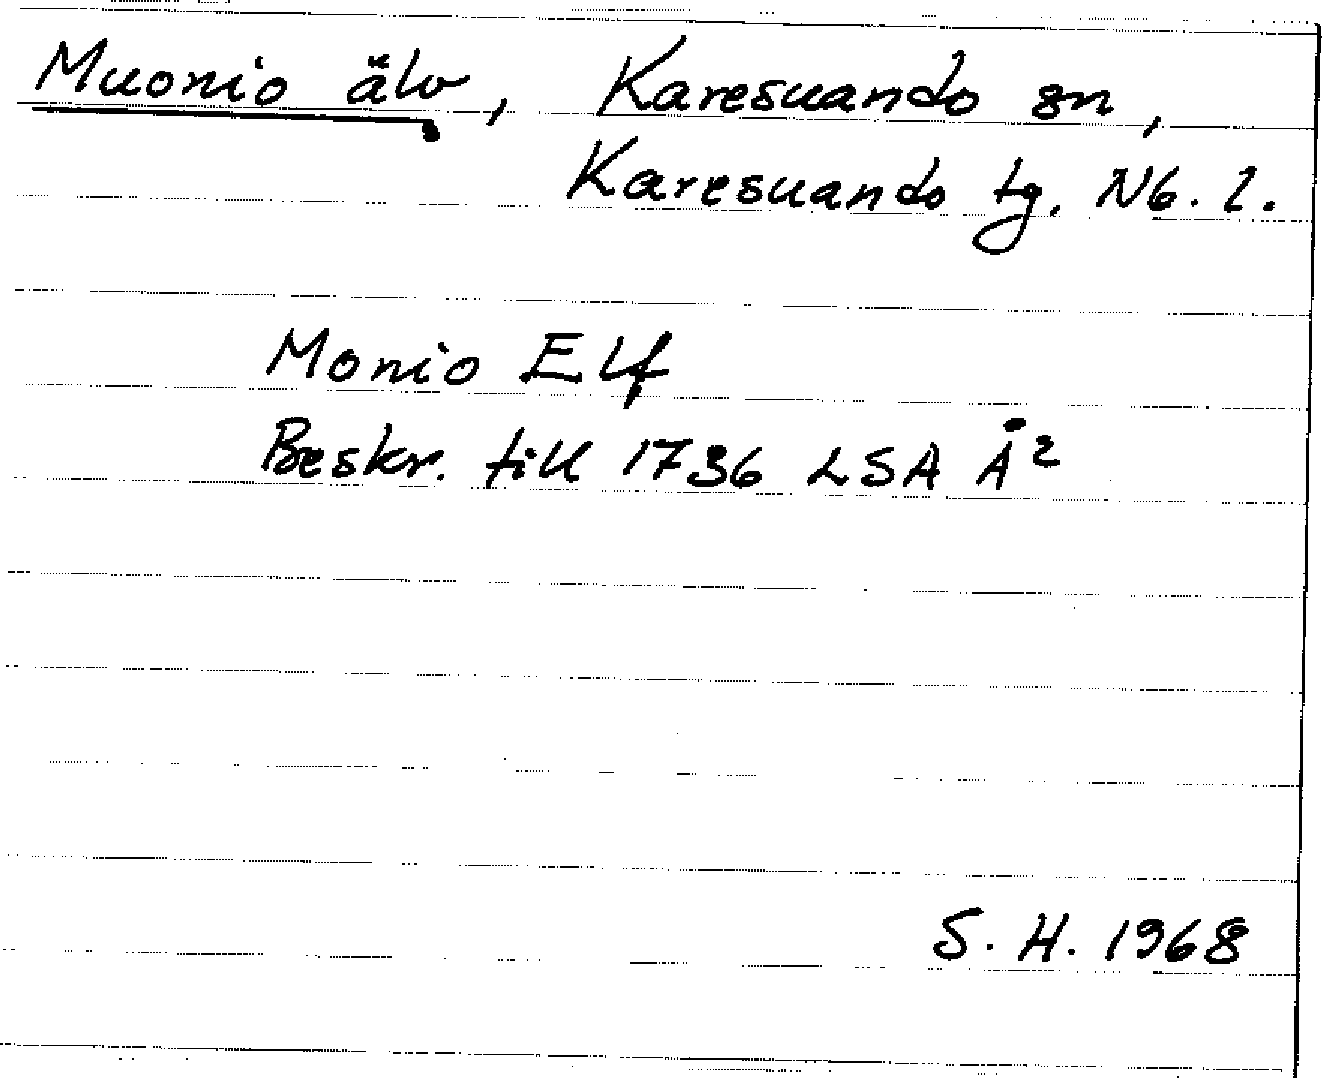 Muonio älv, Karesuando sn,
Karesuando tg. Nb. l.
Monio Elf
Beskr. till 1736 LSA Å²
S. H. 1968